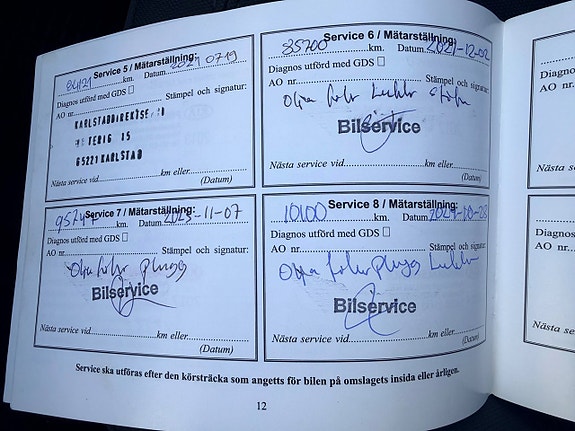 Service 5 / Mätarställning:
84121 km. Datum 2021 0719
Diagnos utförd med GDS
AO nr. Stämpel och signatur:
65221 KARLSTAD
Nästa service vid km eller
(Datum)
Service 6 / Mätarställning:
85700 km. Datum 2021-12-02
Diagnos utförd med GDS
AO nr Stämpel och signatur:
Olja
Bilservice
Nästa service vid km eller
(Datum)
Service 7 / Mätarställning:
95247 km. Datum 2023-11-07
Diagnos utförd med GDS
AO nr Stämpel och signatur:
Olja plugg
Bilservice
Nästa service vid km eller
(Datum)
Service 8 / Mätarställning:
10100 km. Datum
Diagnos utförd med GDS
AO nr Stämpel och signatur:
Olja plugg
Bilservice
Nästa service vid km eller
(Datum)
Service ska utföras efter den körsträcka som angetts för bilen på omslagets insida eller årligen.
12
Diagn
AO nr
Nästa se
Diagno
AO nr
Nästa ser